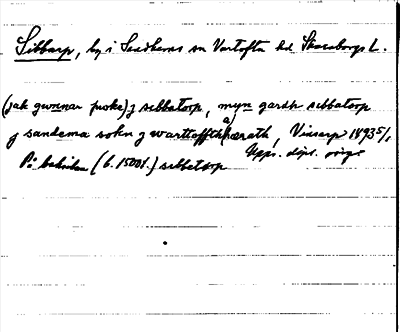 Sibbarp, by i Sandhems sn Vartofta hd Skaraborgs L.
(jak gunnar poske) j sebbatorp, myn gardh sebbatorp
j sandema sokn j warttoffth(a)hærath, Vinsarp 1493 5/1
Upps. dipl. orig.
På baksidan (b. 1500t.) sebbetorp